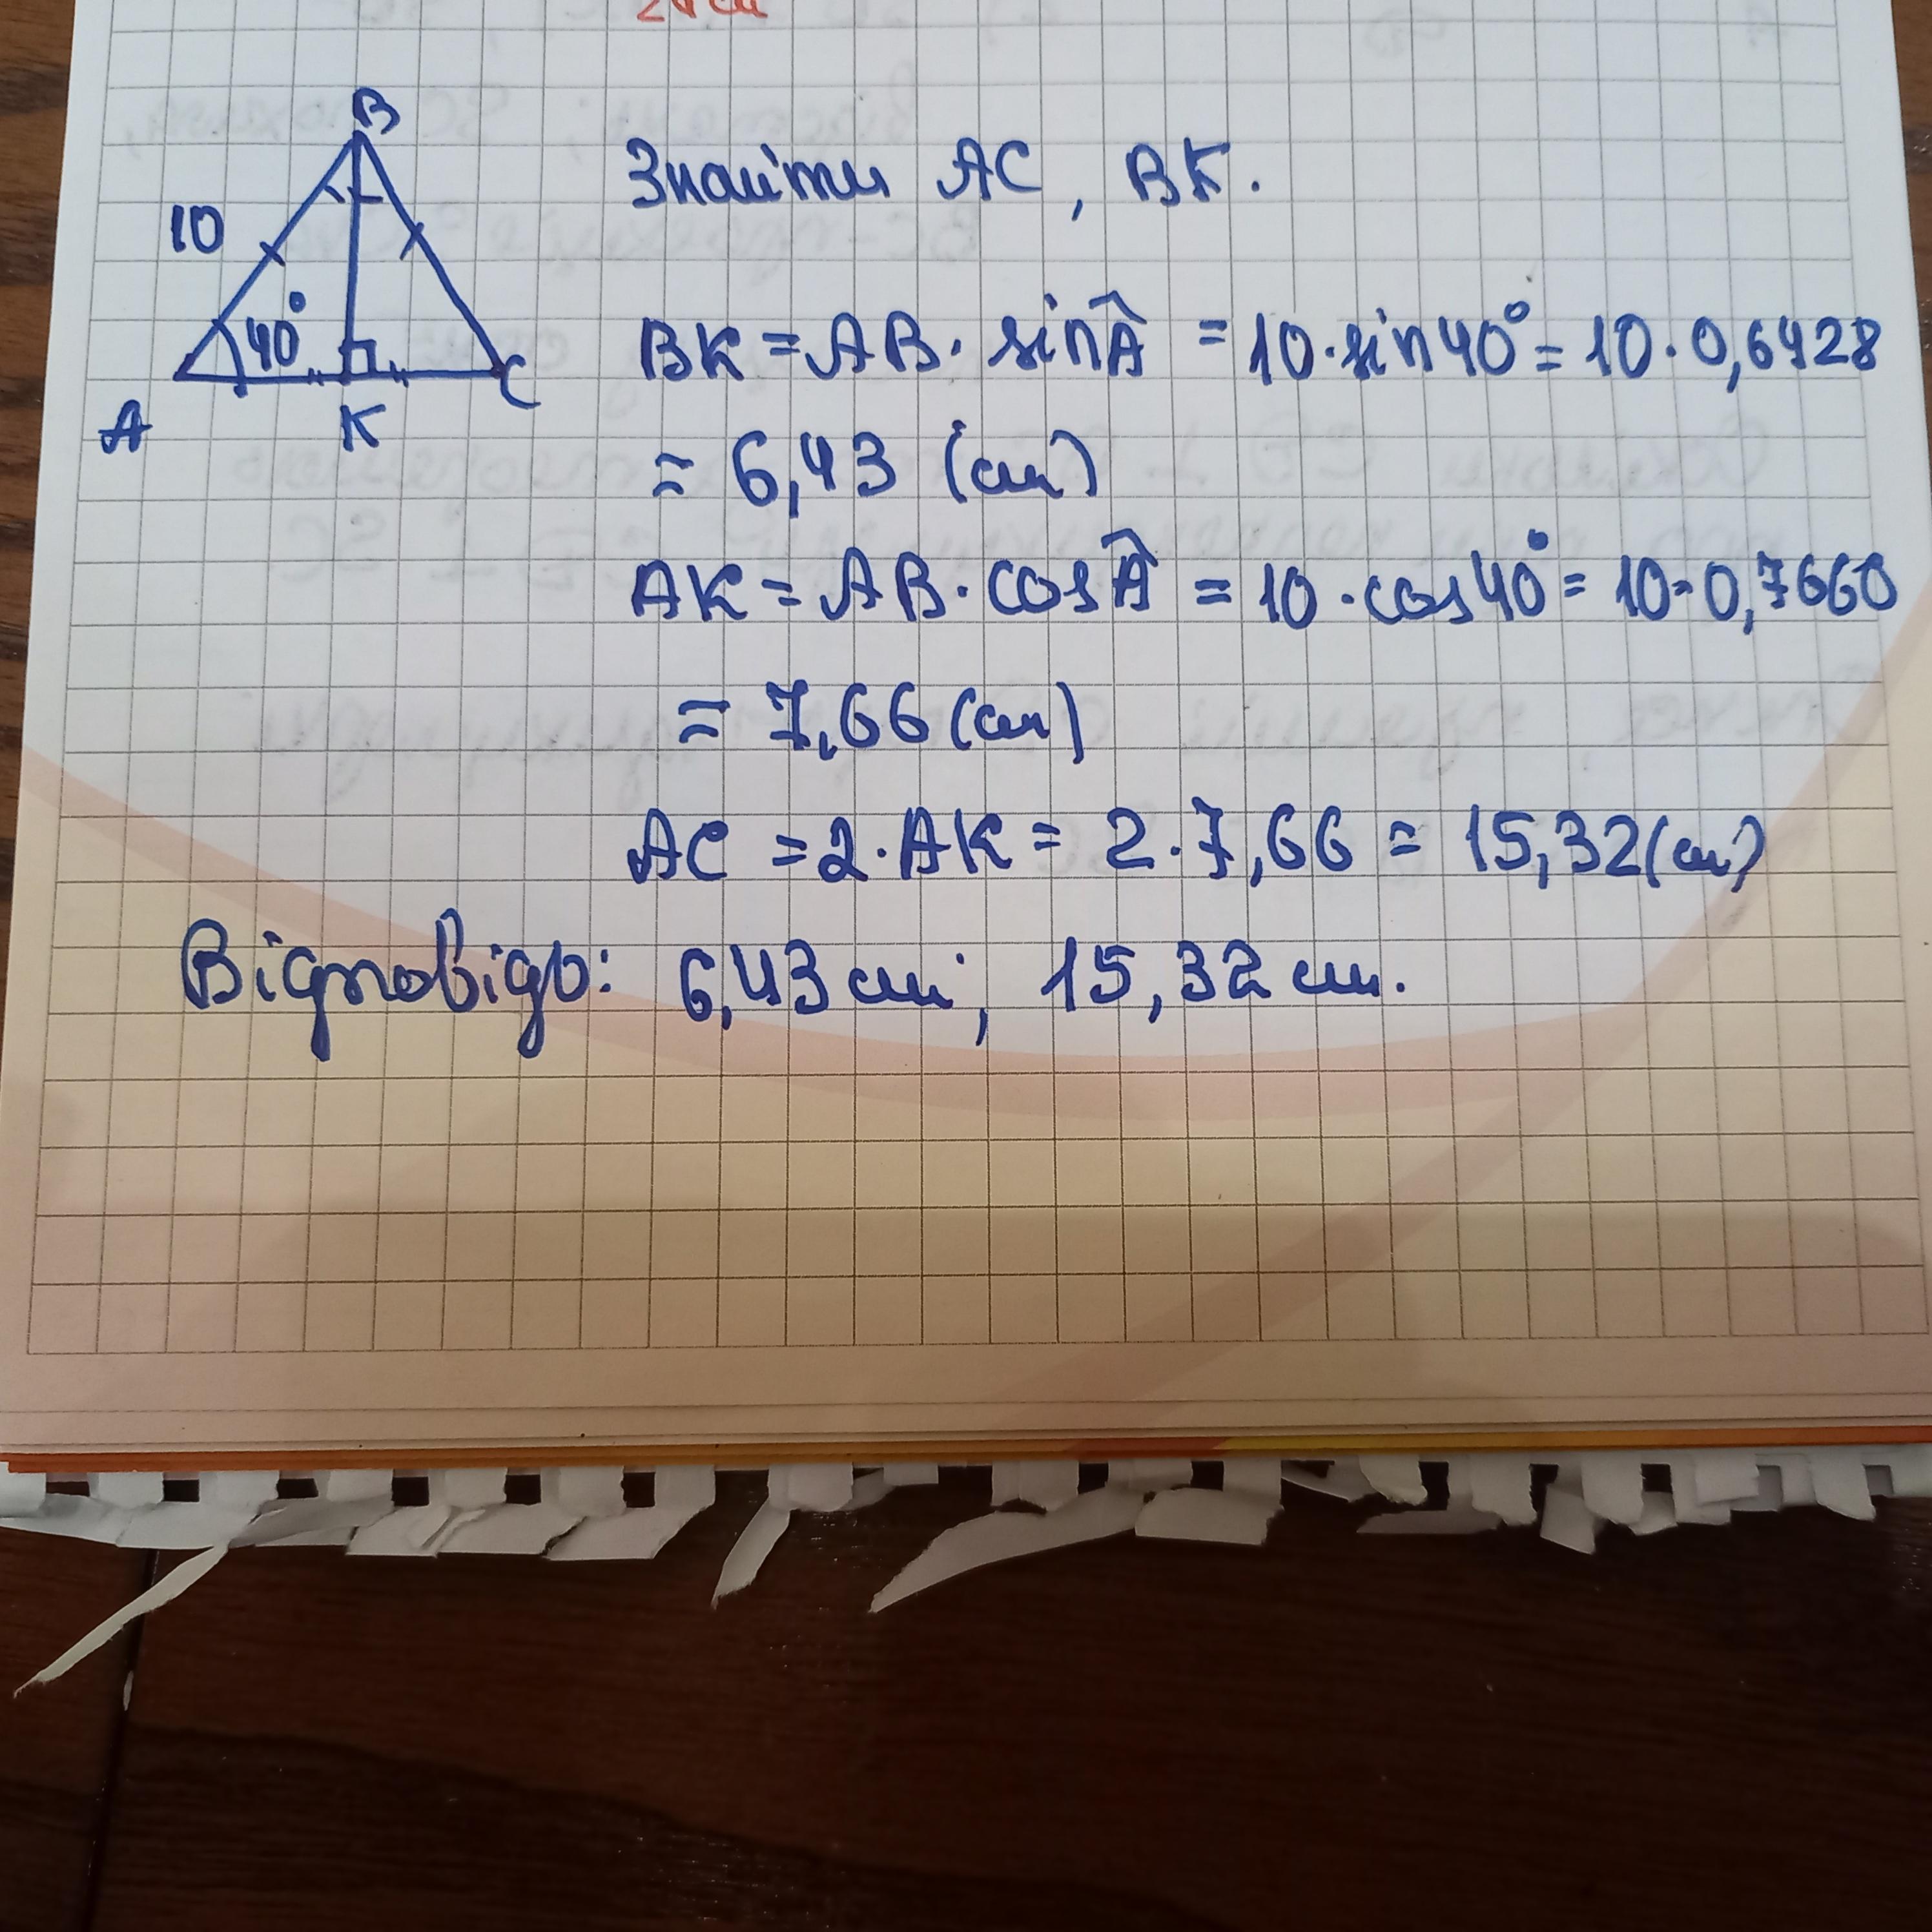 B
10
40°
A K C
Знайти AC, BK.
BK = AB · sin Â = 10 · sin 40° = 10 · 0,6428
= 6,43 (см)
AK = AB · cos Â = 10 · cos 40° = 10 · 0,7660
= 7,66 (см)
AC = 2 · AK = 2 · 7,66 = 15,32 (см)
Відповідь: 6,43 см; 15,32 см.